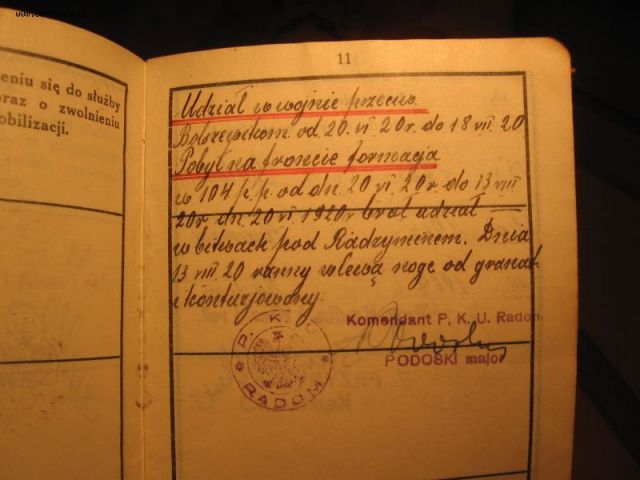 11
eniu się do służby
oraz o zwolnieniu
obilizacji.
Udział w wojnie przeciw
Bolszewikom od 20. VI. 20r. do 18 VIII. 20
Pobyt na froncie formacja
w 104 p.p. od dn. 20 VI. 20r do 13 VIII
20r. dn. 20 VI 1920r brał udział
w bitwach pod Radzyminem. Dnia
13 VIII 20 ranny w lewą nogę od granat
i kontuzjowany.
Komendant P. K. U. Radom
PODOSKI major
P. K. U.
RADOM